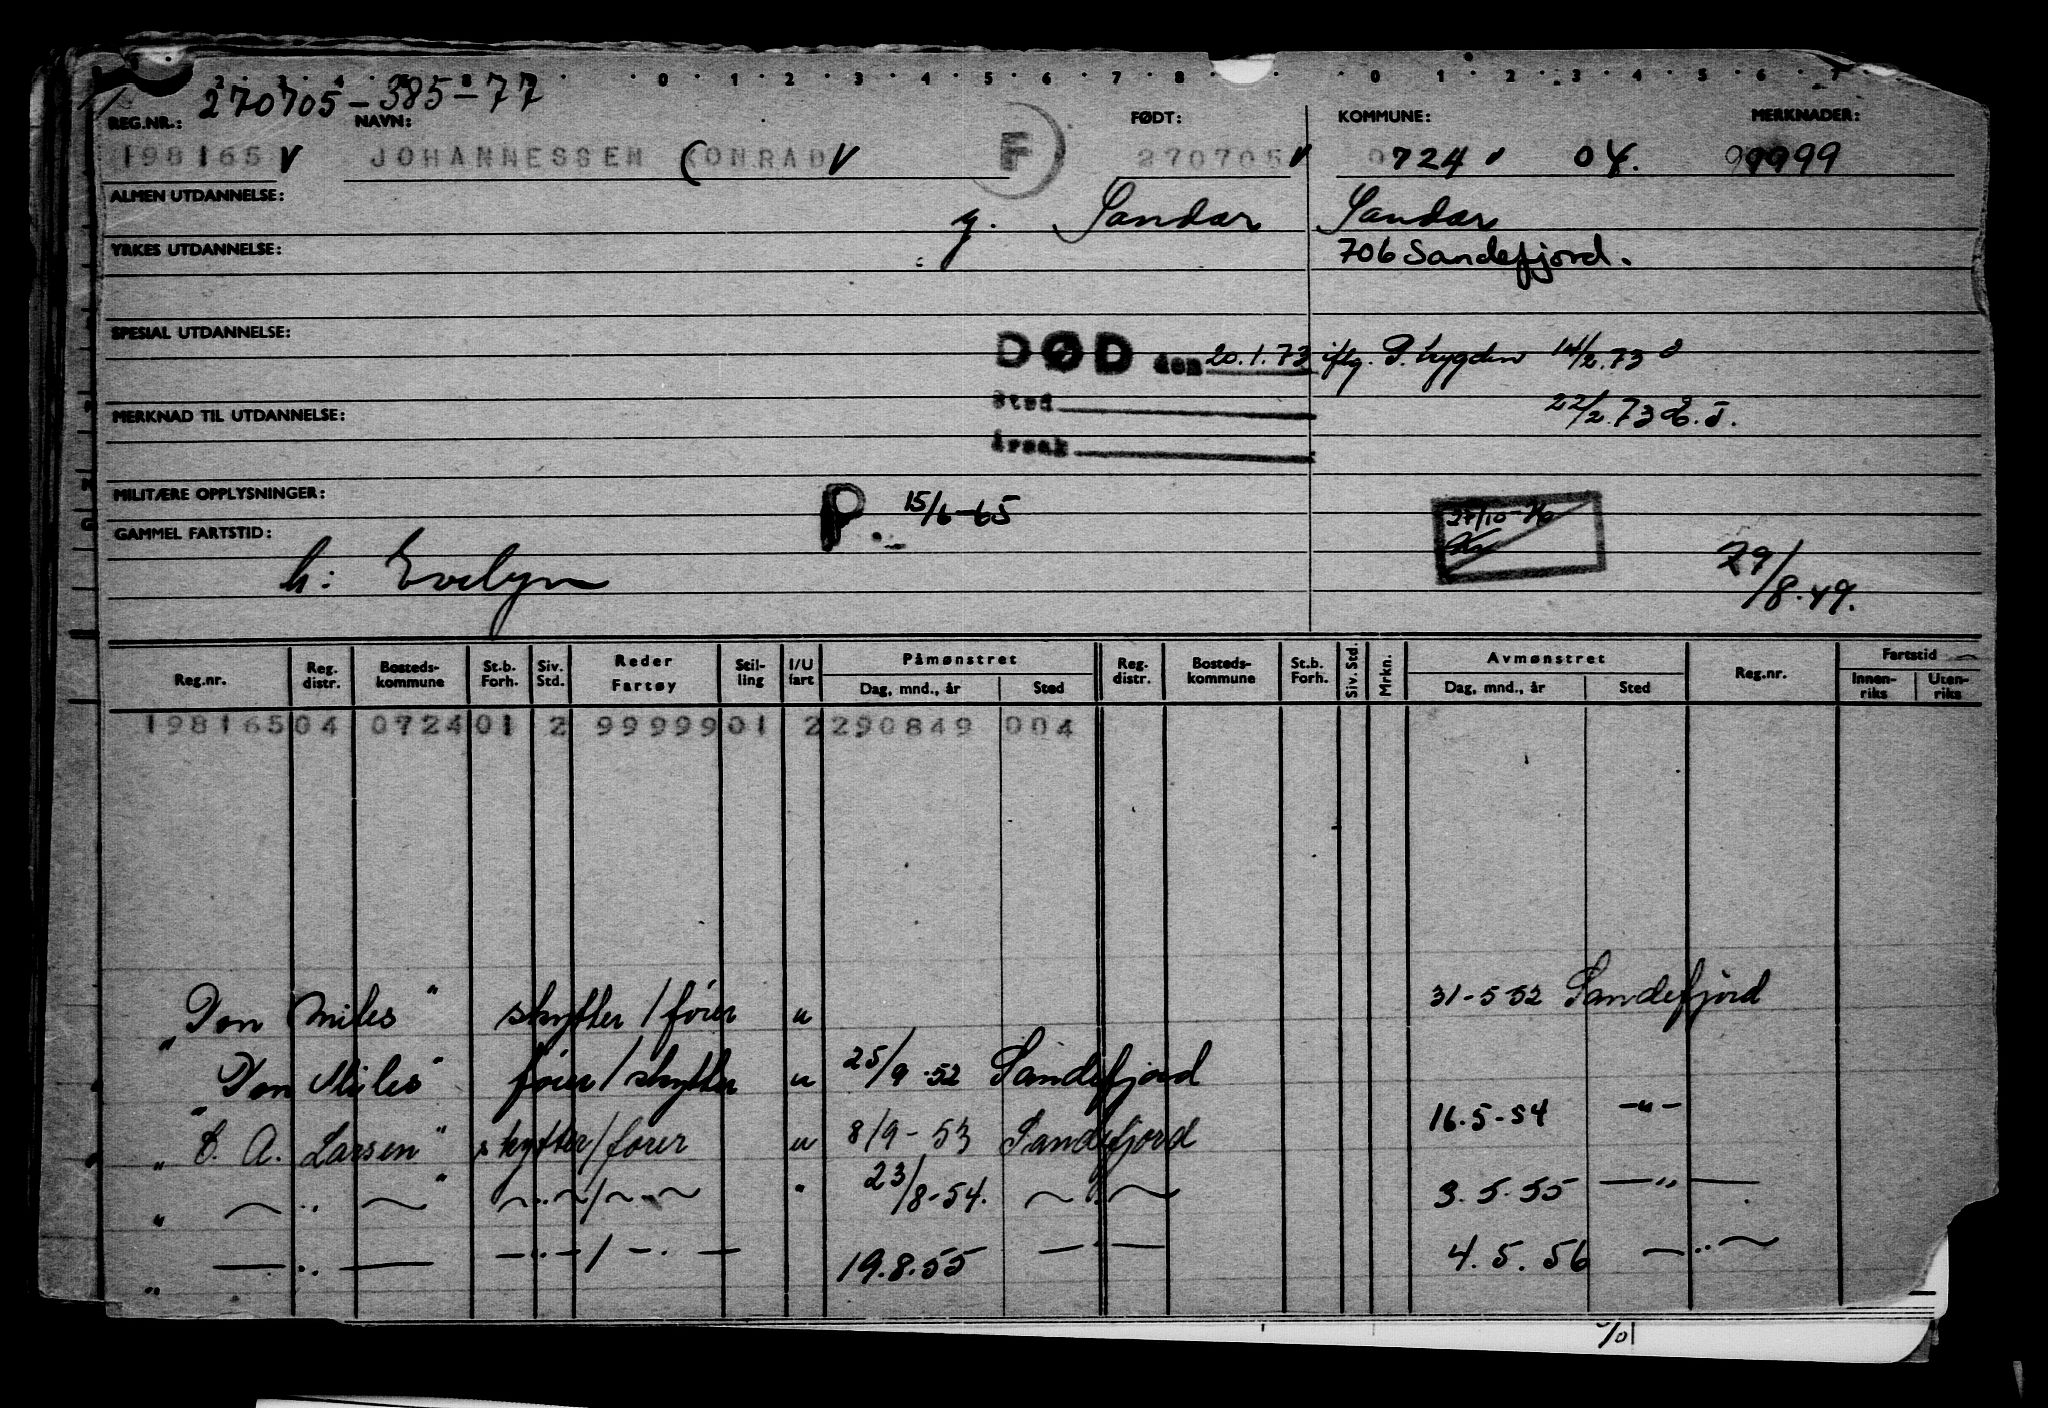 270705-385-77
0 1 2 3 4 5 6 7 8 0 1 2 3 4 5 6 7
REG.NR.: NAVN: FØDT: KOMMUNE: MERKNADER:
198165 V JOHANNESSEN KONRAD V F 270705 0724 04. 99999
ALMEN UTDANNELSE:
g. Sandar Sandar
YRKES UTDANNELSE: 706 Sandefjord.
SPESIAL UTDANNELSE:
DØD den 20.1.73 iflg. P. trygden 14/2.73
Sted
MERKNAD TIL UTDANNELSE: 22/2.73
Årsak
MILITÆRE OPPLYSNINGER: P. 15/6-65
27/10-70
GAMMEL FARTSTID:
h: Evelyn 29/8.49.
Reg.nr. Reg. distr. Bosteds-kommune St.b. Forh. Siv. Std. Reder Fartøy Stil-ling I/U fart Påmønstret Dag, mnd., år Sted Reg. distr. Bosteds-kommune St.b. Forh. Siv. Std. Mrkn. Avmønstret Dag, mnd., år Sted Reg.nr. Fartstid Innen-riks Uten-riks
198165 04 0724 01 2 99999 01 2 290849 004
„Jon Miles" skytter/fører u 31-5-52 Sandefjord
„Jon Miles" fører/skytter u 25/9-52 Sandefjord 16.5-54 -"-
„C. A. Larsen" skytter/fører u 8/9-53 Sandefjord
„ ~ " ~ " ~"~/~"~ " 23/8-54. ~ " ~ 3.5.55 -"-
„ — " — -"-/-"- 19.8.55 — " — 4.5.56 ~"~